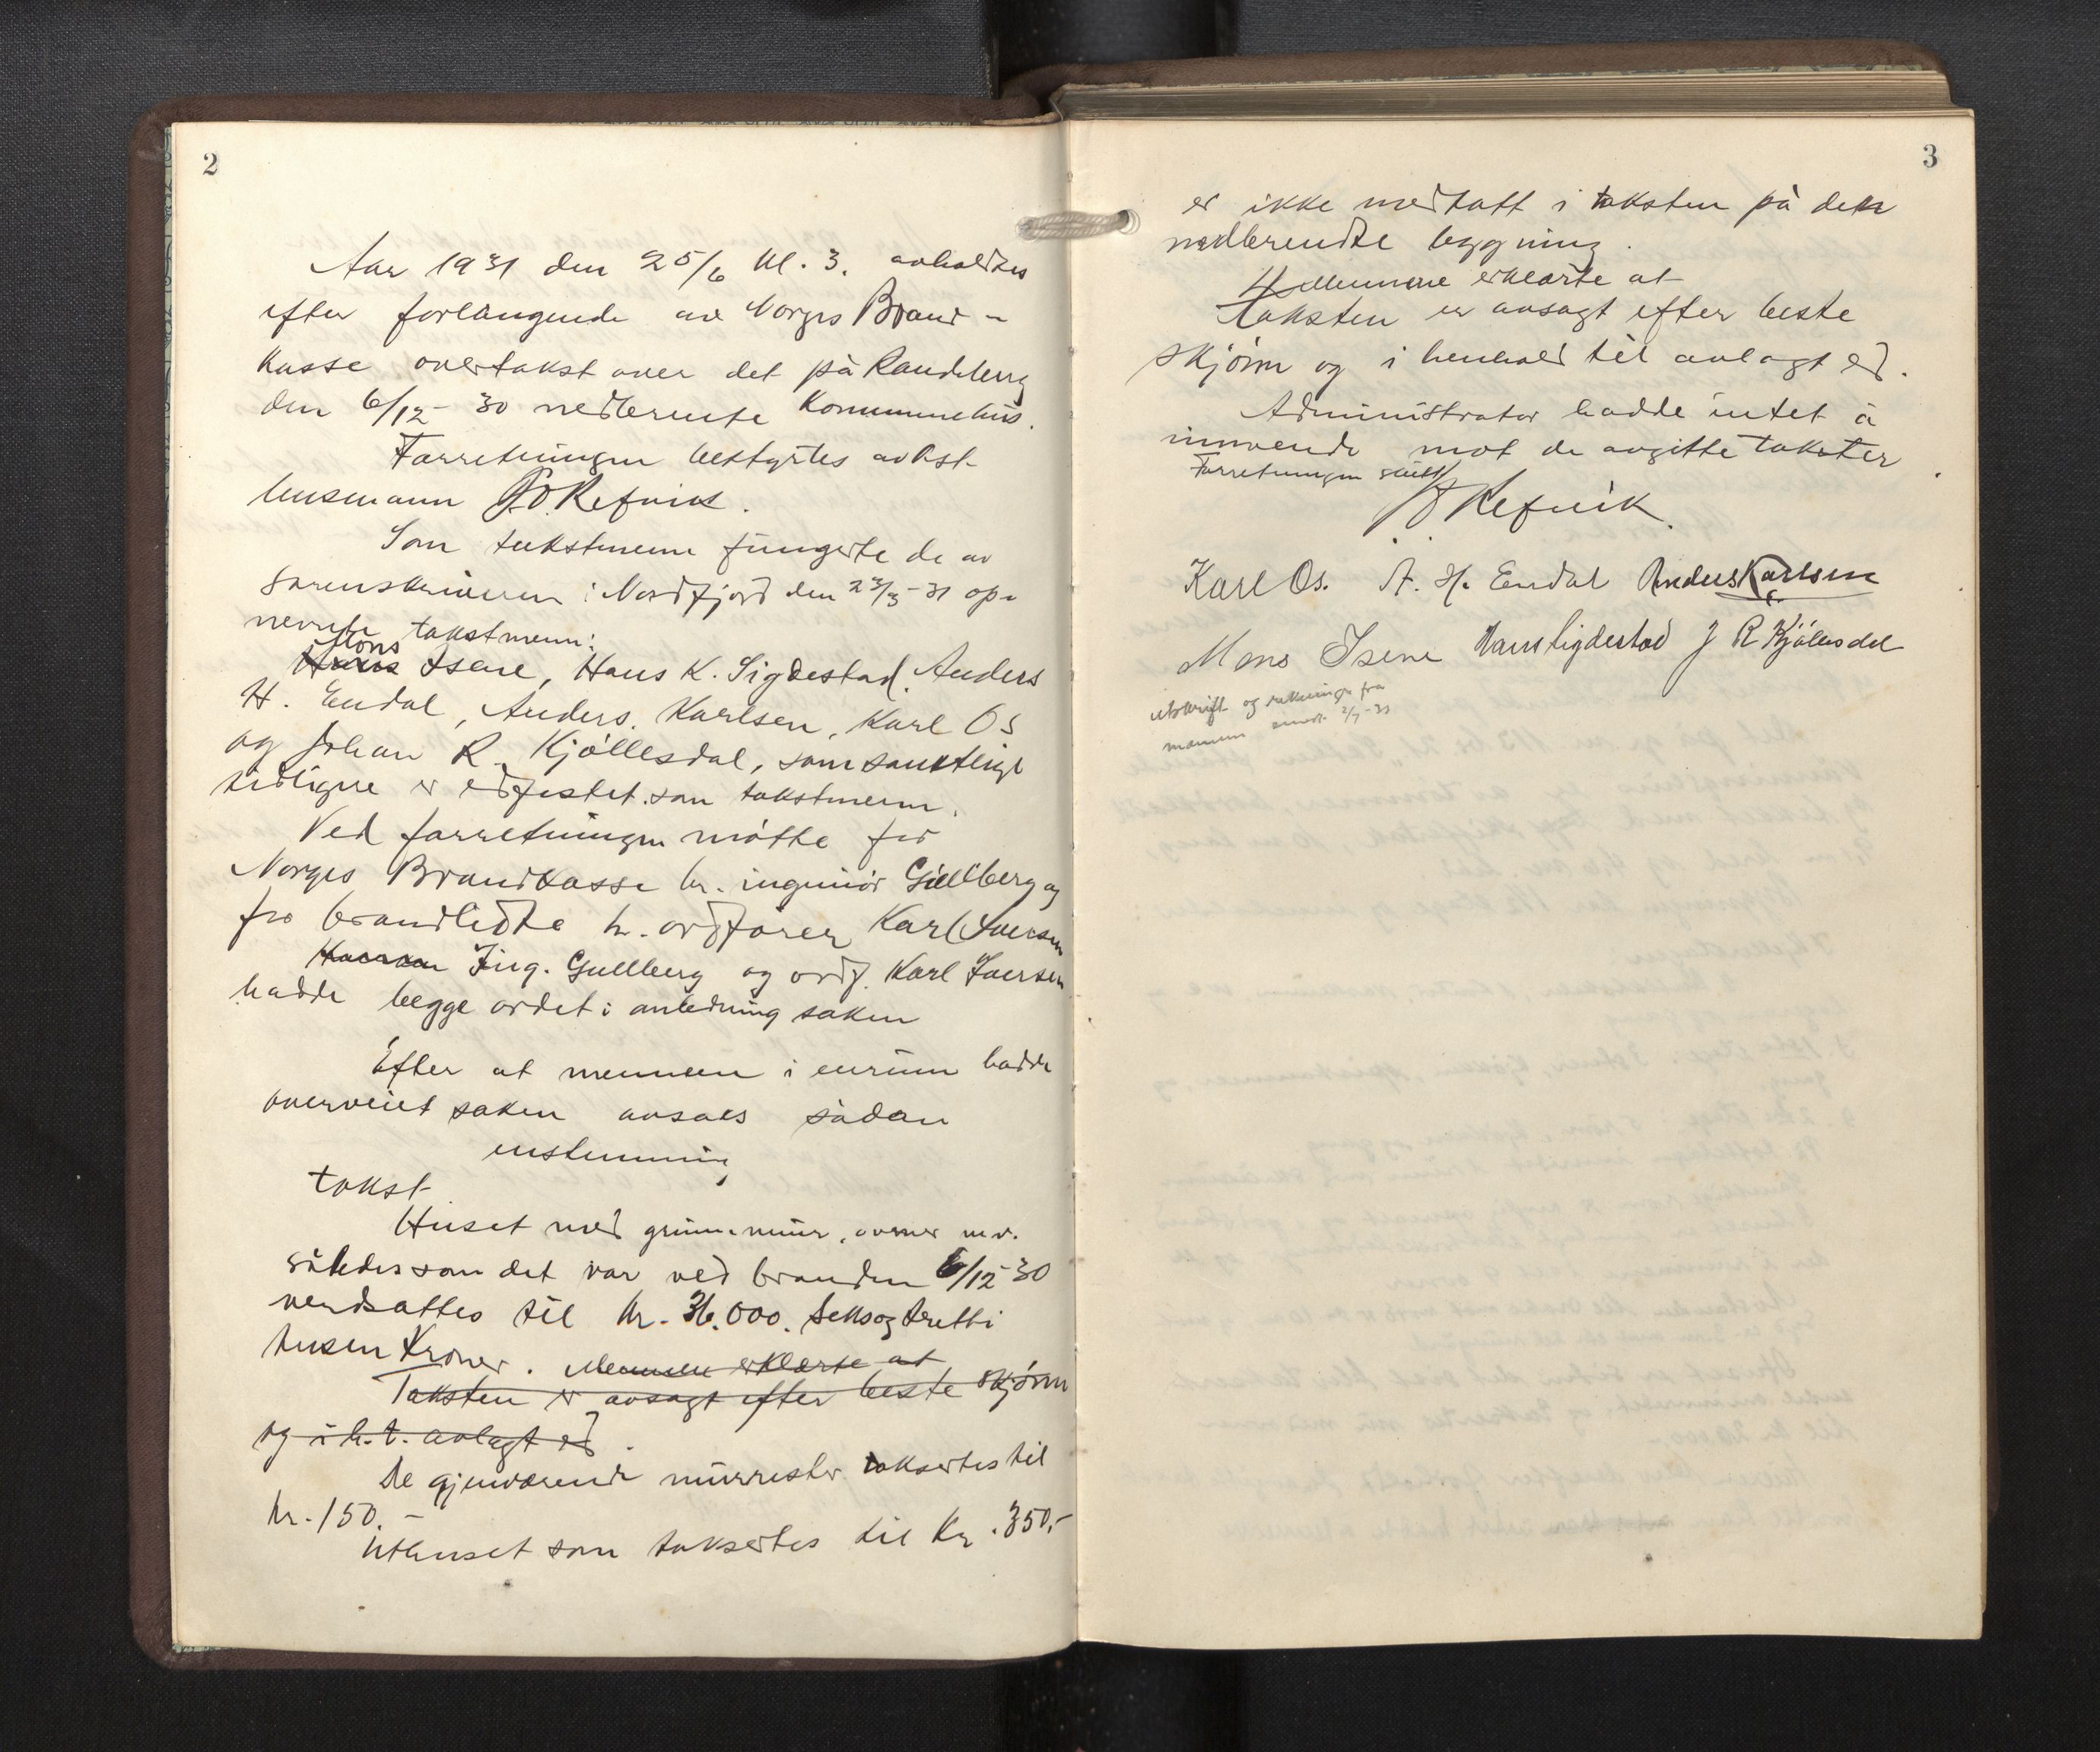 2
Aar 1931 den 25/6 kl. 3. avholdtes
efter forlangende av Norges Brand-
kasse overtakst over det på Randeberg
den 6/12-30 nedbrente Kommunehus.
Forretningen bestyrtes av lst.
lensmann Refvik.
Som takstmenn fungerte de av
sorenskriveren i Nordfjord den 23/3-31 op-
nevnte takstmenn:
Mons
Hans Isene, Hans K. Sigdestad, Anders
H. Endal, Anders Karlsen, Karl Os
og Johan R. Kjøllesdal, som samtlige
tidligere er edfestet som takstmenn.
Ved forretningen møtte for
Norges Brandkasse hr. ingeniør Gullberg og
for brandlidte hr. ordfører Karl Iversen
Ing. Gullberg og ordf. Karl Iversen
hadde begge ordet i anledning saken
Efter at mennene i enrum hadde
overveiet saken avsaes sådan
enstemmig
takst
Huset med grunnmur, ovner m.v.
således som det var ved branden 6/12-30
verdsattes til kr. 36.000. Seksogtretti
tusen Kroner. Mennene erklærte at
Taksten er avsagt efter beste skjønn
og i h.t. avlagt ed.
De gjenværende murrester taksertes til
kr. 150.-
Uthuset som taksertes til kr. 350,-
3
er ikke medtatt i taksten på den
nedbrendte bygning.
Mennene erklærte at
Taksten er avsagt efter beste
skjønn og i henhold til avlagt ed.
Administrator hadde intet å
innvende mot de avgitte takster.
Forretningen slutt
Refvik.
Karl Os. A. H. Endal Anders Karlsen
Mons Isene Hans Sigdestad J R Kjøllesdal
utskrift og rekninge fra
mennene sendt 2/7-31